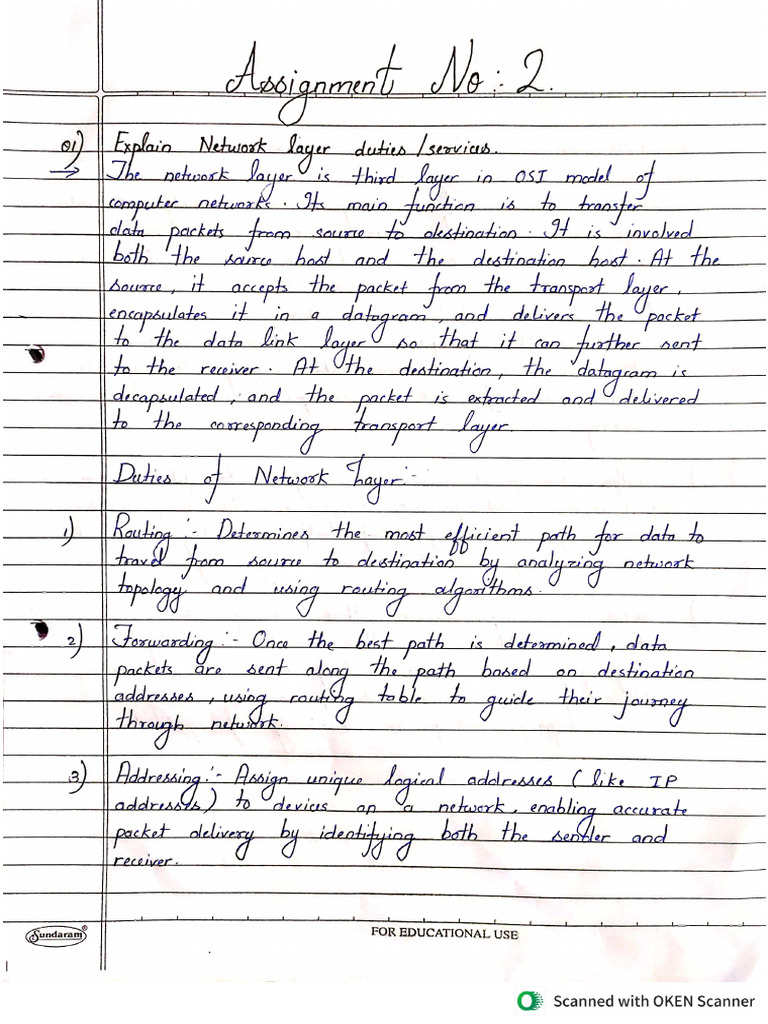 Assignment No:- 2.
Q1) Explain Network layer duties/services.
→ The network layer is third layer in OSI model of
computer networks. Its main function is to transfer
data packets from source to destination. It is involved
both the source host and the destination host. At the
source, it accepts the packet from the transport layer,
encapsulates it in a datagram, and delivers the packet
to the data link layer so that it can further sent
to the receiver. At the destination, the datagram is
decapsulated, and the packet is extracted and delivered
to the corresponding transport layer.
Duties of Network Layer:-
1) Routing:- Determines the most efficient path for data to
travel from source to destination by analyzing network
topology and using routing algorithms.
2) Forwarding:- Once the best path is determined, data
packets are sent along the path based on destination
addresses, using routing table to guide their journey
through network.
3) Addressing:- Assign unique logical addresses (like IP
addresses) to devices on a network, enabling accurate
packet delivery by identifying both the sender and
receiver.
Sundaram®
FOR EDUCATIONAL USE
Scanned with OKEN Scanner